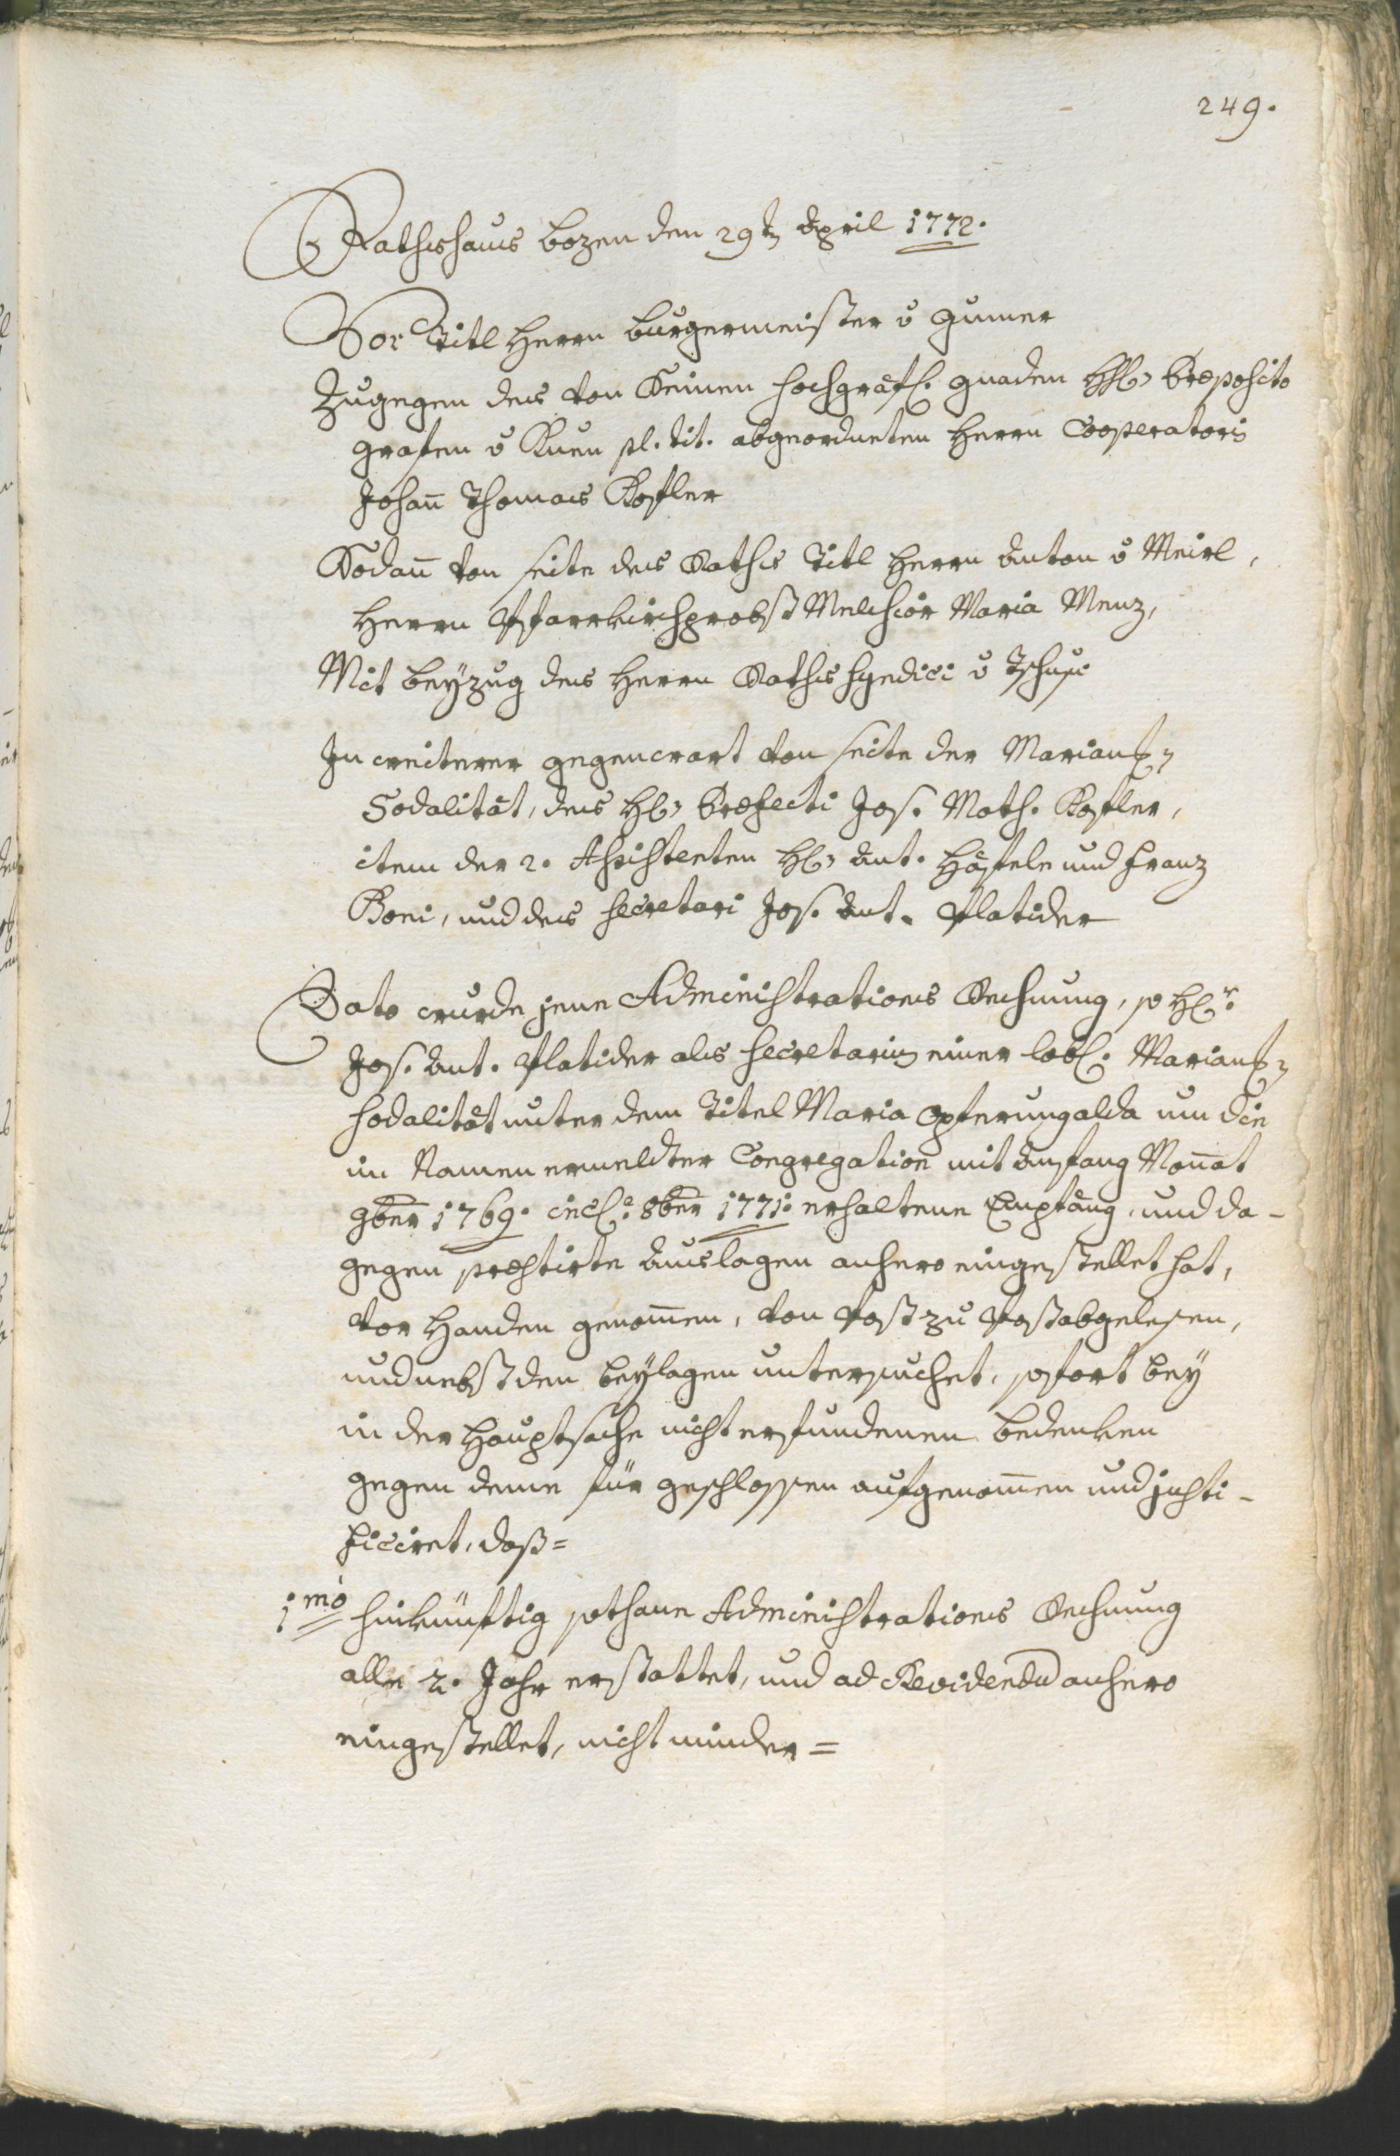 249.
Rathshaus Bozen den 29tn April 1772.
Vor Titl Herrn Burgermeister v Gumer
Zugegen des von Seinen hochgräfl. Gnaden HH. Præposito
Grafen v Kuen pl. tit. abgeordneten Herrn Cooperatoris
Johan̄ Thomas Kofler
Sodan̄ von seite des Raths Titl Herrn Anton v Meirl,
Herrn Pfarrkirchprobst Melchior Maria Menz,
Mit beÿzug des Herrn Raths Syndici v Tschusi
In weiterer gegenwart von seite der Marian:
Sodalität, des H. Præfecti Jos. Math. Kofler,
item der 2. Assistenten H. Ant. Häfele und Franz
Boni, und des Secretari Jos. Ant. Platider
Dato wurde jene Administrations Rechnung, so Hr.
Jos. Ant. Platider als Secretarius einer löbl. Marian:
Sodalität unter dem Titel Maria Opferung alda um die
im Namen ermeldter Congregation mit Anfang Mon̄at
9ber 1769. incl. 8ber 1771. erhaltene Empfäng, und da-
gegen præstirte Auslagen anhero eingestellet hat,
vor Handen genom̄en, von Post zu Post abgelesen,
und nebst den beÿlagen untersuchet, sofort beÿ
in der Hauptsache nicht erfundenen bedenken
gegen deme für geschlossen aufgenom̄en und justi-
ficiret, daß=
1mo hinkünftig sothane Administrations Rechnung
alle 2. Jahr erstattet, und ad Revidendū anhero
eingestellet, nicht minder=